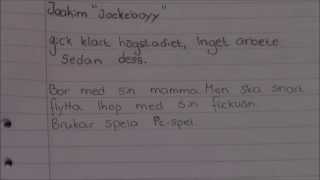 Joakim "Jockeboyy"
gick klart högstadiet, Inget arbete
sedan dess.
Bor med sin mamma. Men ska snart
flytta ihop med sin flickvän.
Brukar spela Pc-spel.